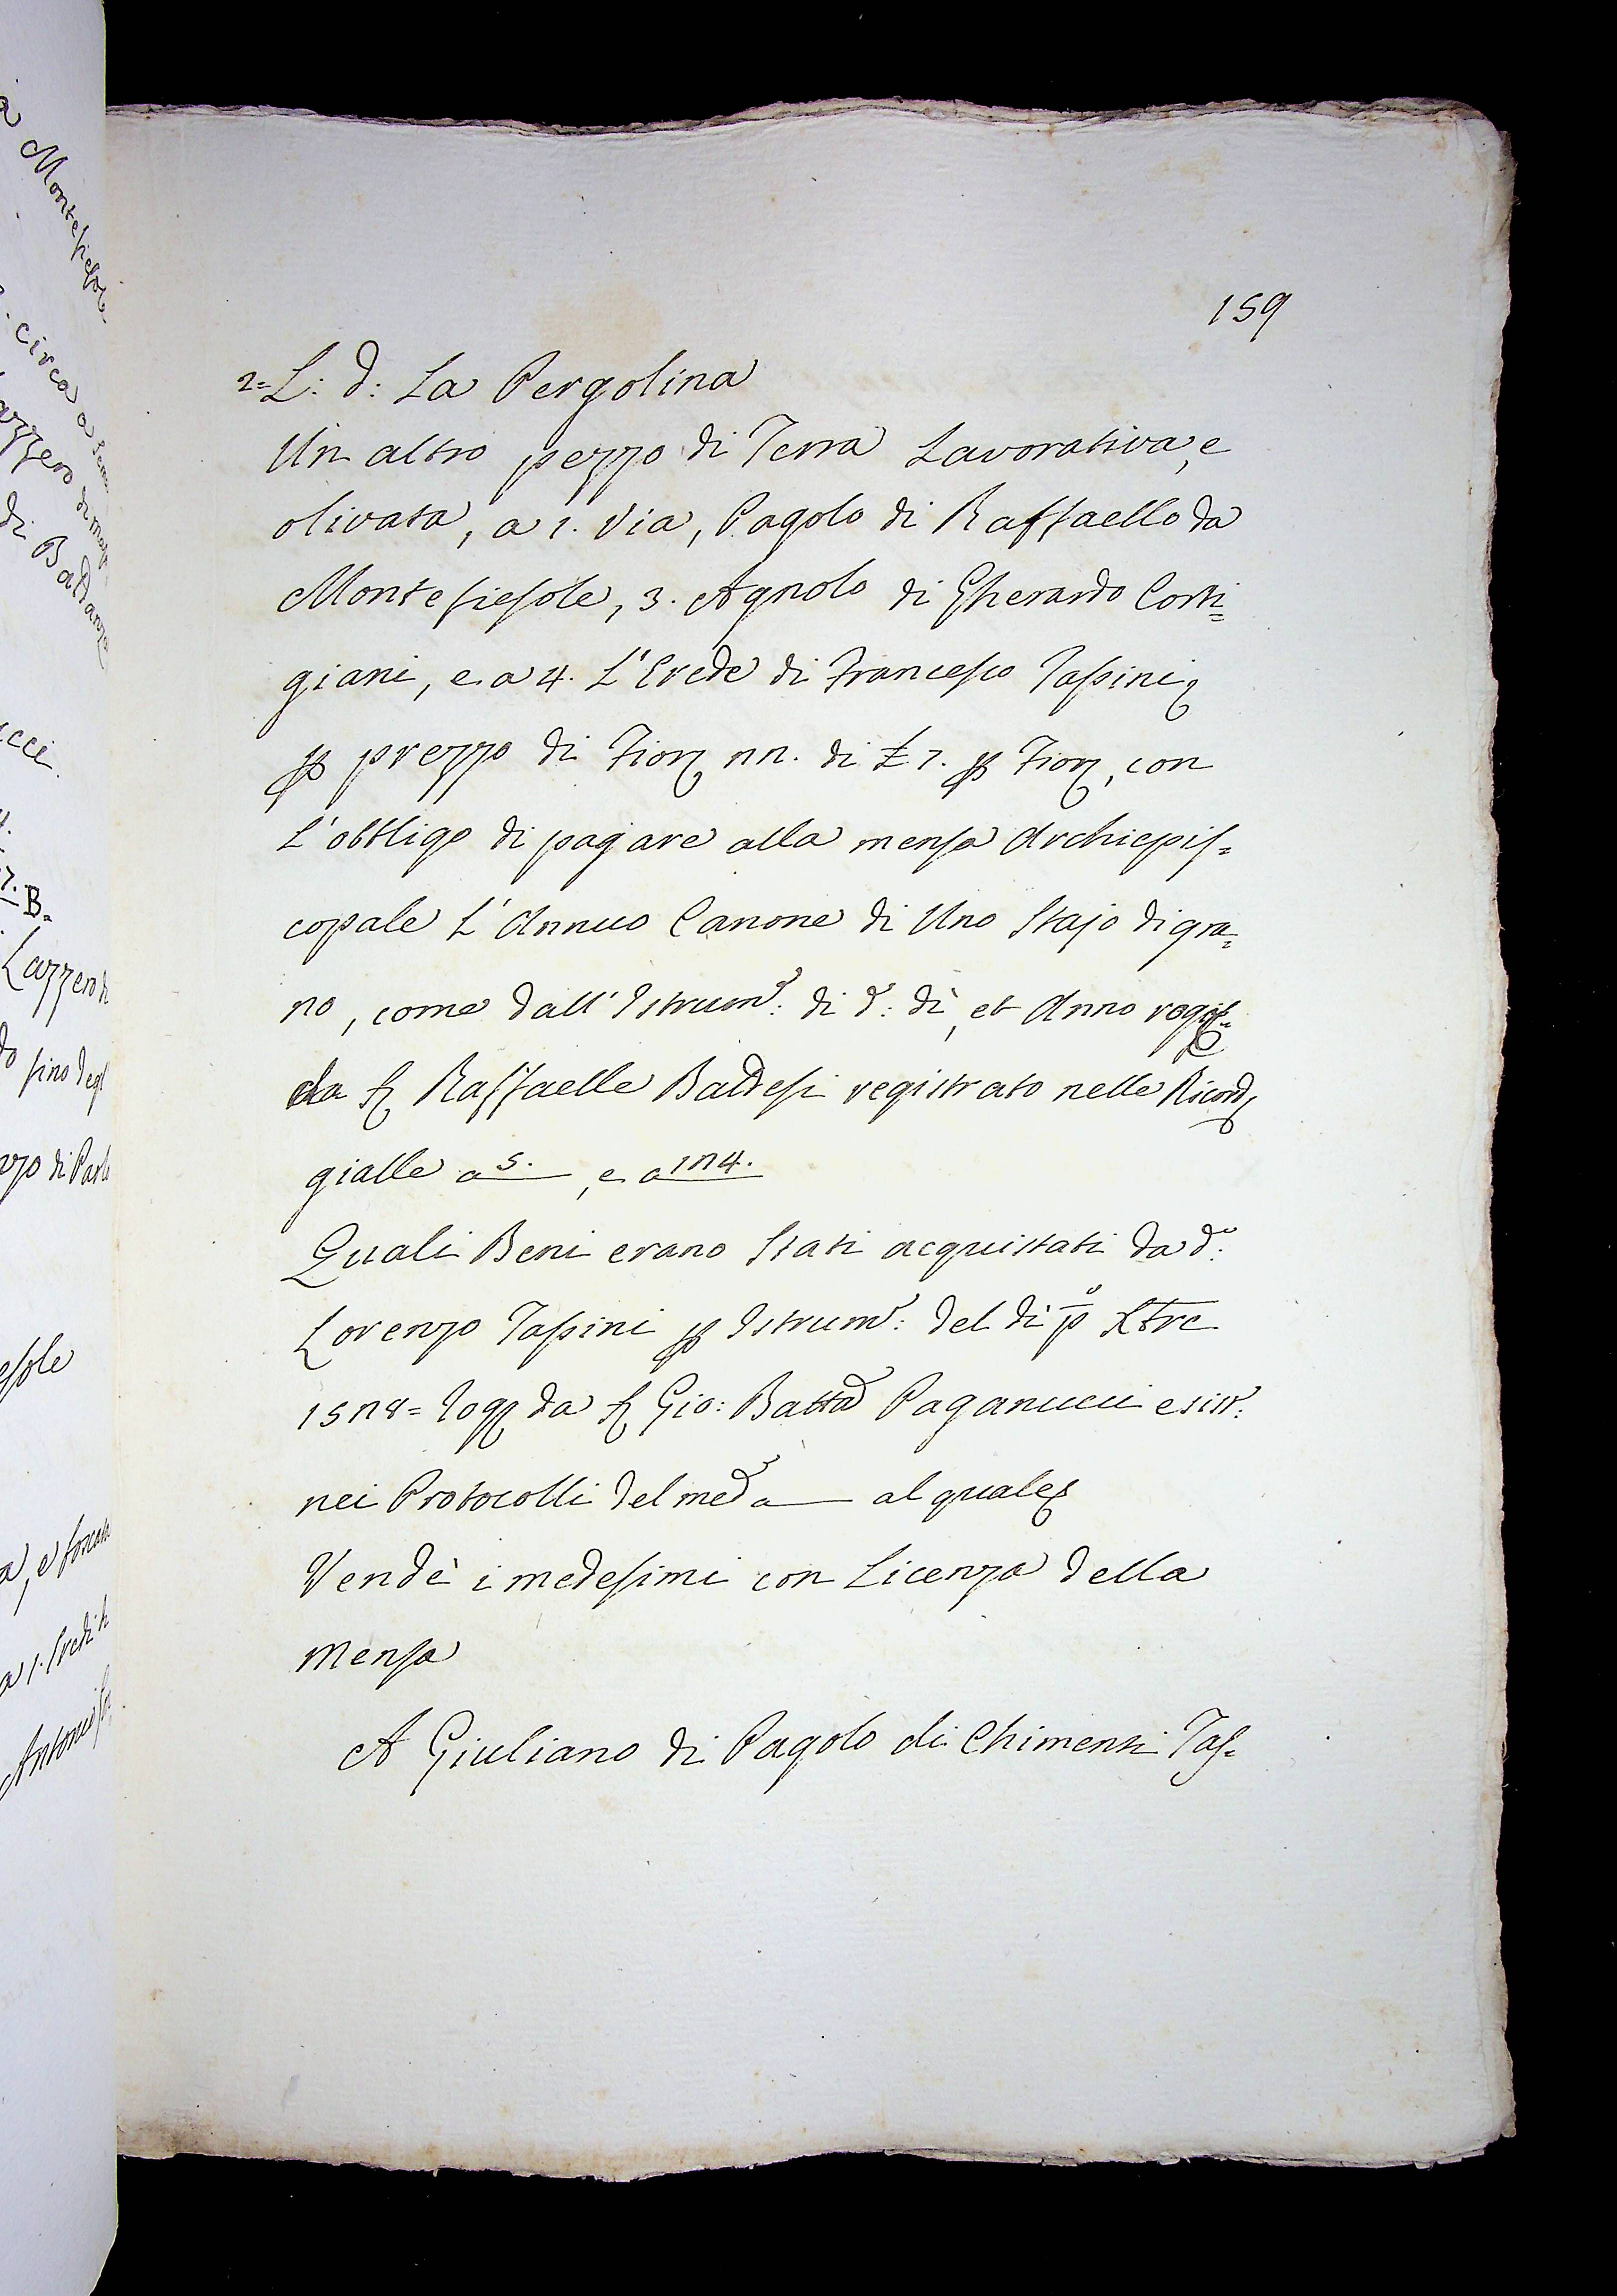 159
2= L: d: La Pergolina
Un altro pezzo di Terra Lavorativa, e
olivata, a 1. Via, Pagolo di Raffaello da
Montefiesole, 3. Agnolo di Gherardo Corti=
giani, e a 4. L'Erede di Francesco Tassini
prezzo di Fior nn. di £ 7. Fior, con
L'obbligo di pagare alla mensa Archiepis=
copale L'Annuo Canone di Uno Stajo di gra=
no, come dall'Istrum: di d: dì, et Anno rog
da Raffaelle Baldesi registrato nelle Ricord
gialle a 5. , e a 1n4.
Quali Beni erano Stati acquistati da d:
Lorenzo Tassini Istrum: del dì p Xbre
15n8= Rog da Gio: Batta Paganucci esist:
nei Protocolli del med a al quale
Vendè i medesimi con Licenza della
Mensa
A Giuliano di Pagolo di Chimenti Tas=